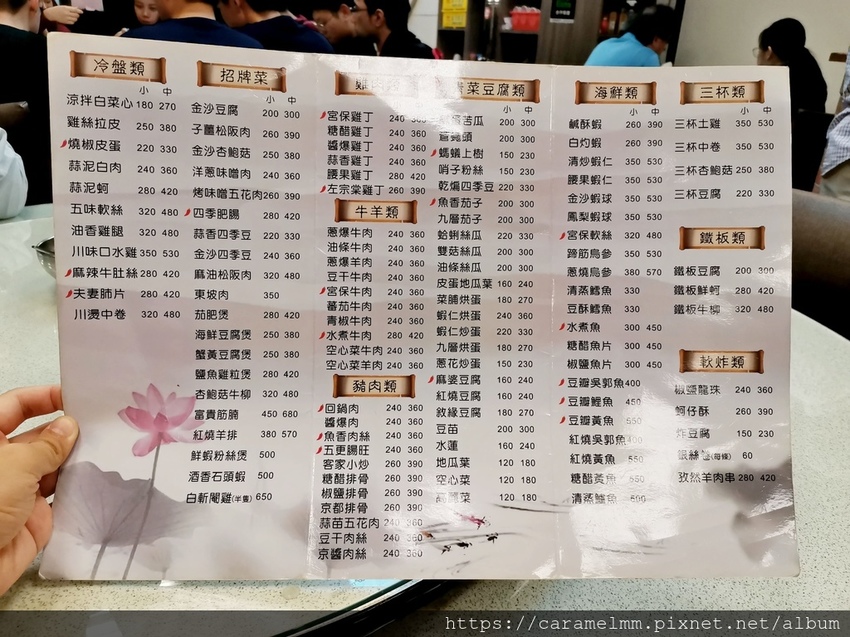 冷盤類
小 中
涼拌白菜心 180 270
雞絲拉皮 250 380
燒椒皮蛋 220 330
蒜泥白肉 240 360
蒜泥蚵 280 420
五味軟絲 320 480
油香雞腿 320 480
川味口水雞 350 530
麻辣牛肚絲 280 420
夫妻肺片 280 420
川燙中卷 320 480
招牌菜
小 中
金沙豆腐 200 300
子薑松阪肉 260 390
金沙杏鮑菇 250 380
洋蔥味噌肉 240 360
烤味噌五花肉 260 390
四季肥腸 280 420
蒜香四季豆 220 330
金沙四季豆 240 360
麻油松阪肉 320 480
東坡肉 350
茄肥煲 280 420
海鮮豆腐煲 250 380
蟹黃豆腐煲 250 380
鹽魚雞粒煲 280 420
杏鮑菇牛柳 320 480
富貴筋腩 450 680
紅燒羊排 380 570
鮮蝦粉絲煲 500
酒香石頭蝦 500
白斬閹雞(半隻) 650
宮保雞丁 240 360
糖醋雞丁 240 360
醬爆雞丁 240 360
蒜香雞丁 240 360
腰果雞丁 280 420
左宗棠雞丁 260 390
牛羊類
蔥爆牛肉 240 360
油條牛肉 240 360
蔥爆羊肉 240 360
豆干牛肉 240 360
宮保牛肉 240 360
蕃茄牛肉 240 360
青椒牛肉 240 360
水煮牛肉 280 420
空心菜牛肉 240 360
空心菜羊肉 240 360
豬肉類
回鍋肉 240 360
醬爆肉 240 360
魚香肉絲 240 360
五更腸旺 240 360
客家小炒 260 390
糖醋排骨 260 390
椒鹽排骨 260 390
京都排骨 260 390
蒜苗五花肉 240 360
豆干肉絲 240 360
京醬肉絲 240 360
菜豆腐類
小 中
苦瓜 200 300
蒼蠅頭 200 300
螞蟻上樹 150 230
哨子粉絲 150 230
乾煸四季豆 220 330
魚香茄子 200 300
九層茄子 200 300
蛤蜊絲瓜 220 330
雙菇絲瓜 200 300
油條絲瓜 200 300
皮蛋地瓜葉 160 240
菜脯烘蛋 180 270
蝦仁烘蛋 240 360
蝦仁炒蛋 220 330
九層烘蛋 180 270
蔥花炒蛋 150 230
麻婆豆腐 160 240
紅燒豆腐 160 240
敘緣豆腐 180 270
豆苗 200 300
水蓮 160 240
地瓜葉 120 180
空心菜 120 180
高麗菜 120 180
海鮮類
小 中
鹹酥蝦 260 390
白灼蝦 260 390
清炒蝦仁 350 530
腰果蝦仁 350 530
金沙蝦球 350 530
鳳梨蝦球 350 530
宮保軟絲 320 480
蹄筋烏參 350 530
蔥燒烏參 380 570
清蒸鱈魚 330
豆酥鱈魚 330
水煮魚 300 450
糖醋魚片 300 450
椒鹽魚片 300 450
豆瓣吳郭魚 400
豆瓣鯉魚 450
豆瓣黃魚 550
紅燒吳郭魚 400
紅燒黃魚 550
糖醋黃魚 550
清蒸鱸魚 500
三杯類
小 中
三杯土雞 350 530
三杯中卷 350 530
三杯杏鮑菇 250 380
三杯豆腐 220 330
鐵板類
小 中
鐵板豆腐 200 300
鐵板鮮蚵 280 420
鐵板牛柳 320 480
軟炸類
小 中
椒鹽龍珠 240 360
蚵仔酥 260 390
炸豆腐 150 230
銀絲 (每條) 60
孜然羊肉串 280 420
https://caramelmm.pixnet.net/album